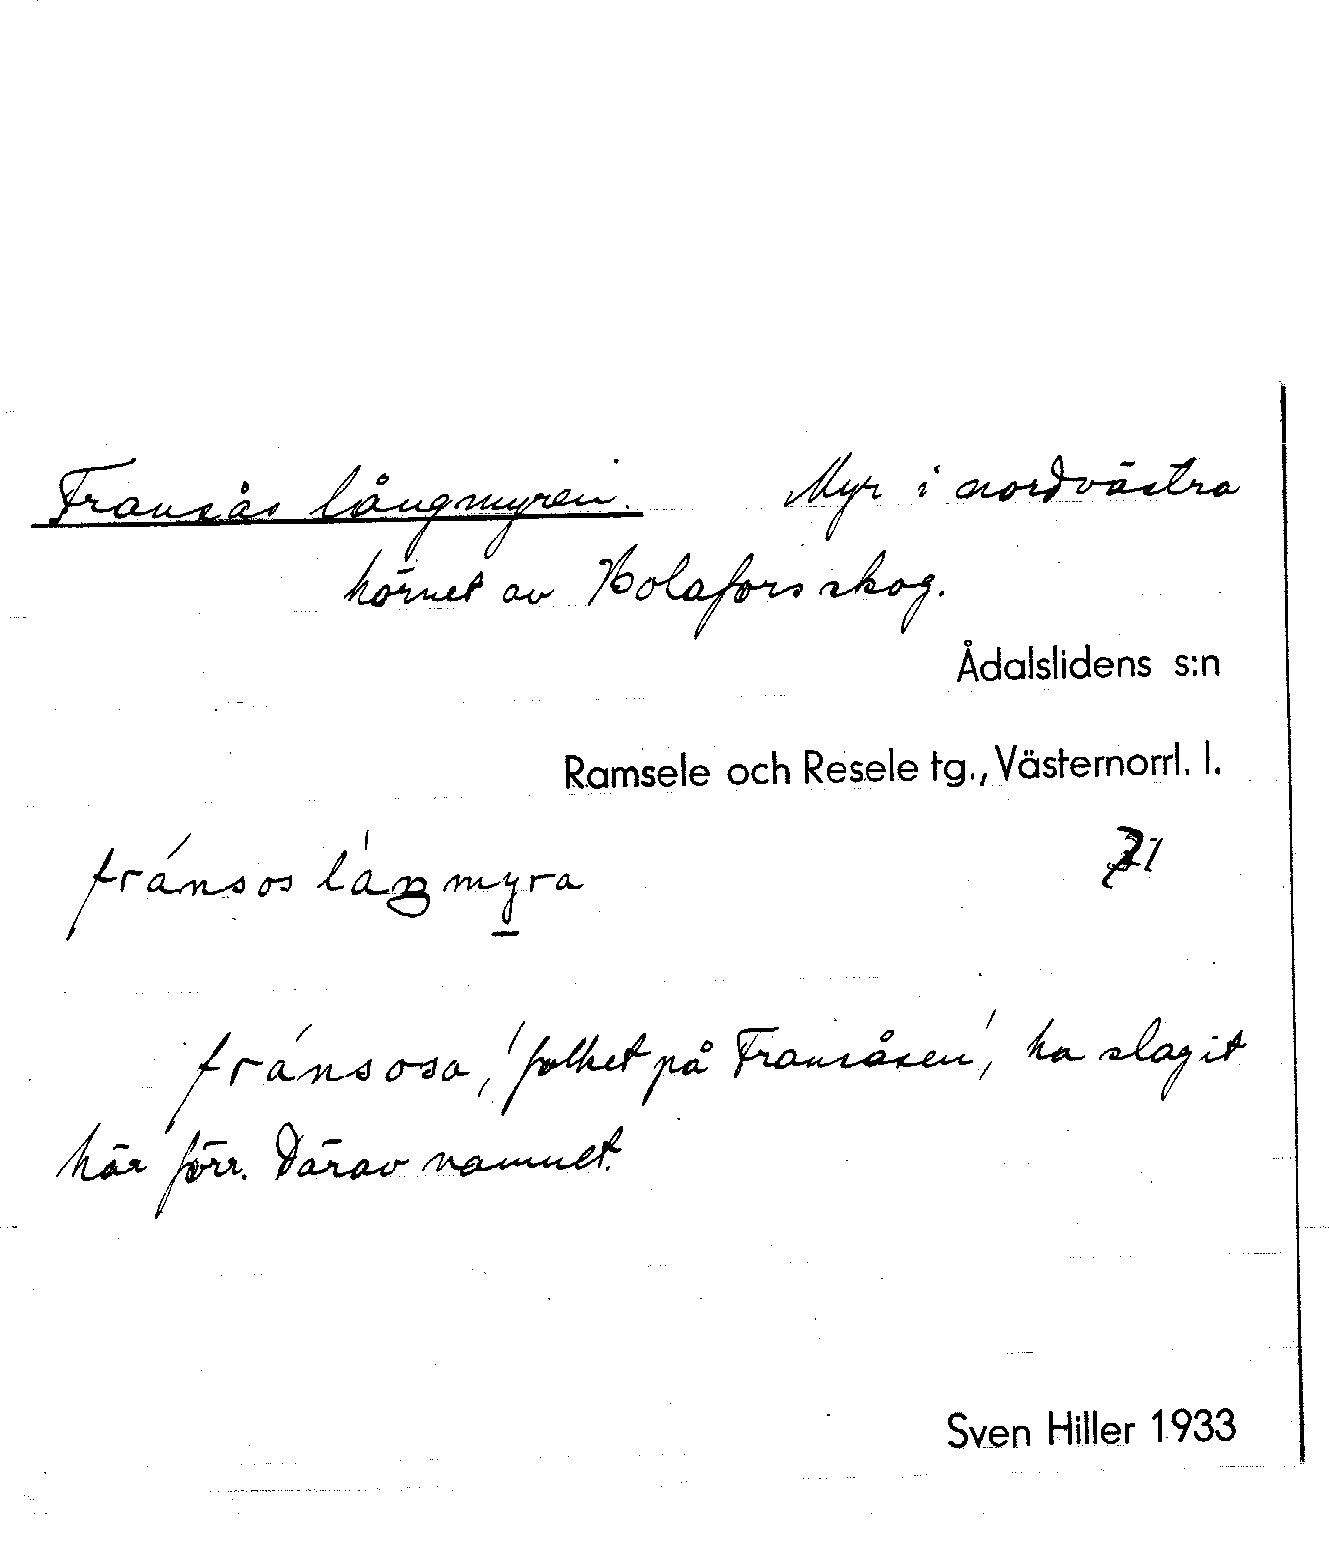 Fransås långmyren. Myr i nordvästra
hörnet av Holafors skog.
Ådalslidens s:n
Ramsele och Resele tg., Västernorrl. l.
fránsos láŋmyra
fránsosa, 'folket på Fransåsen', ha slagit
här förr. Därav namnet.
Sven Hiller 1933